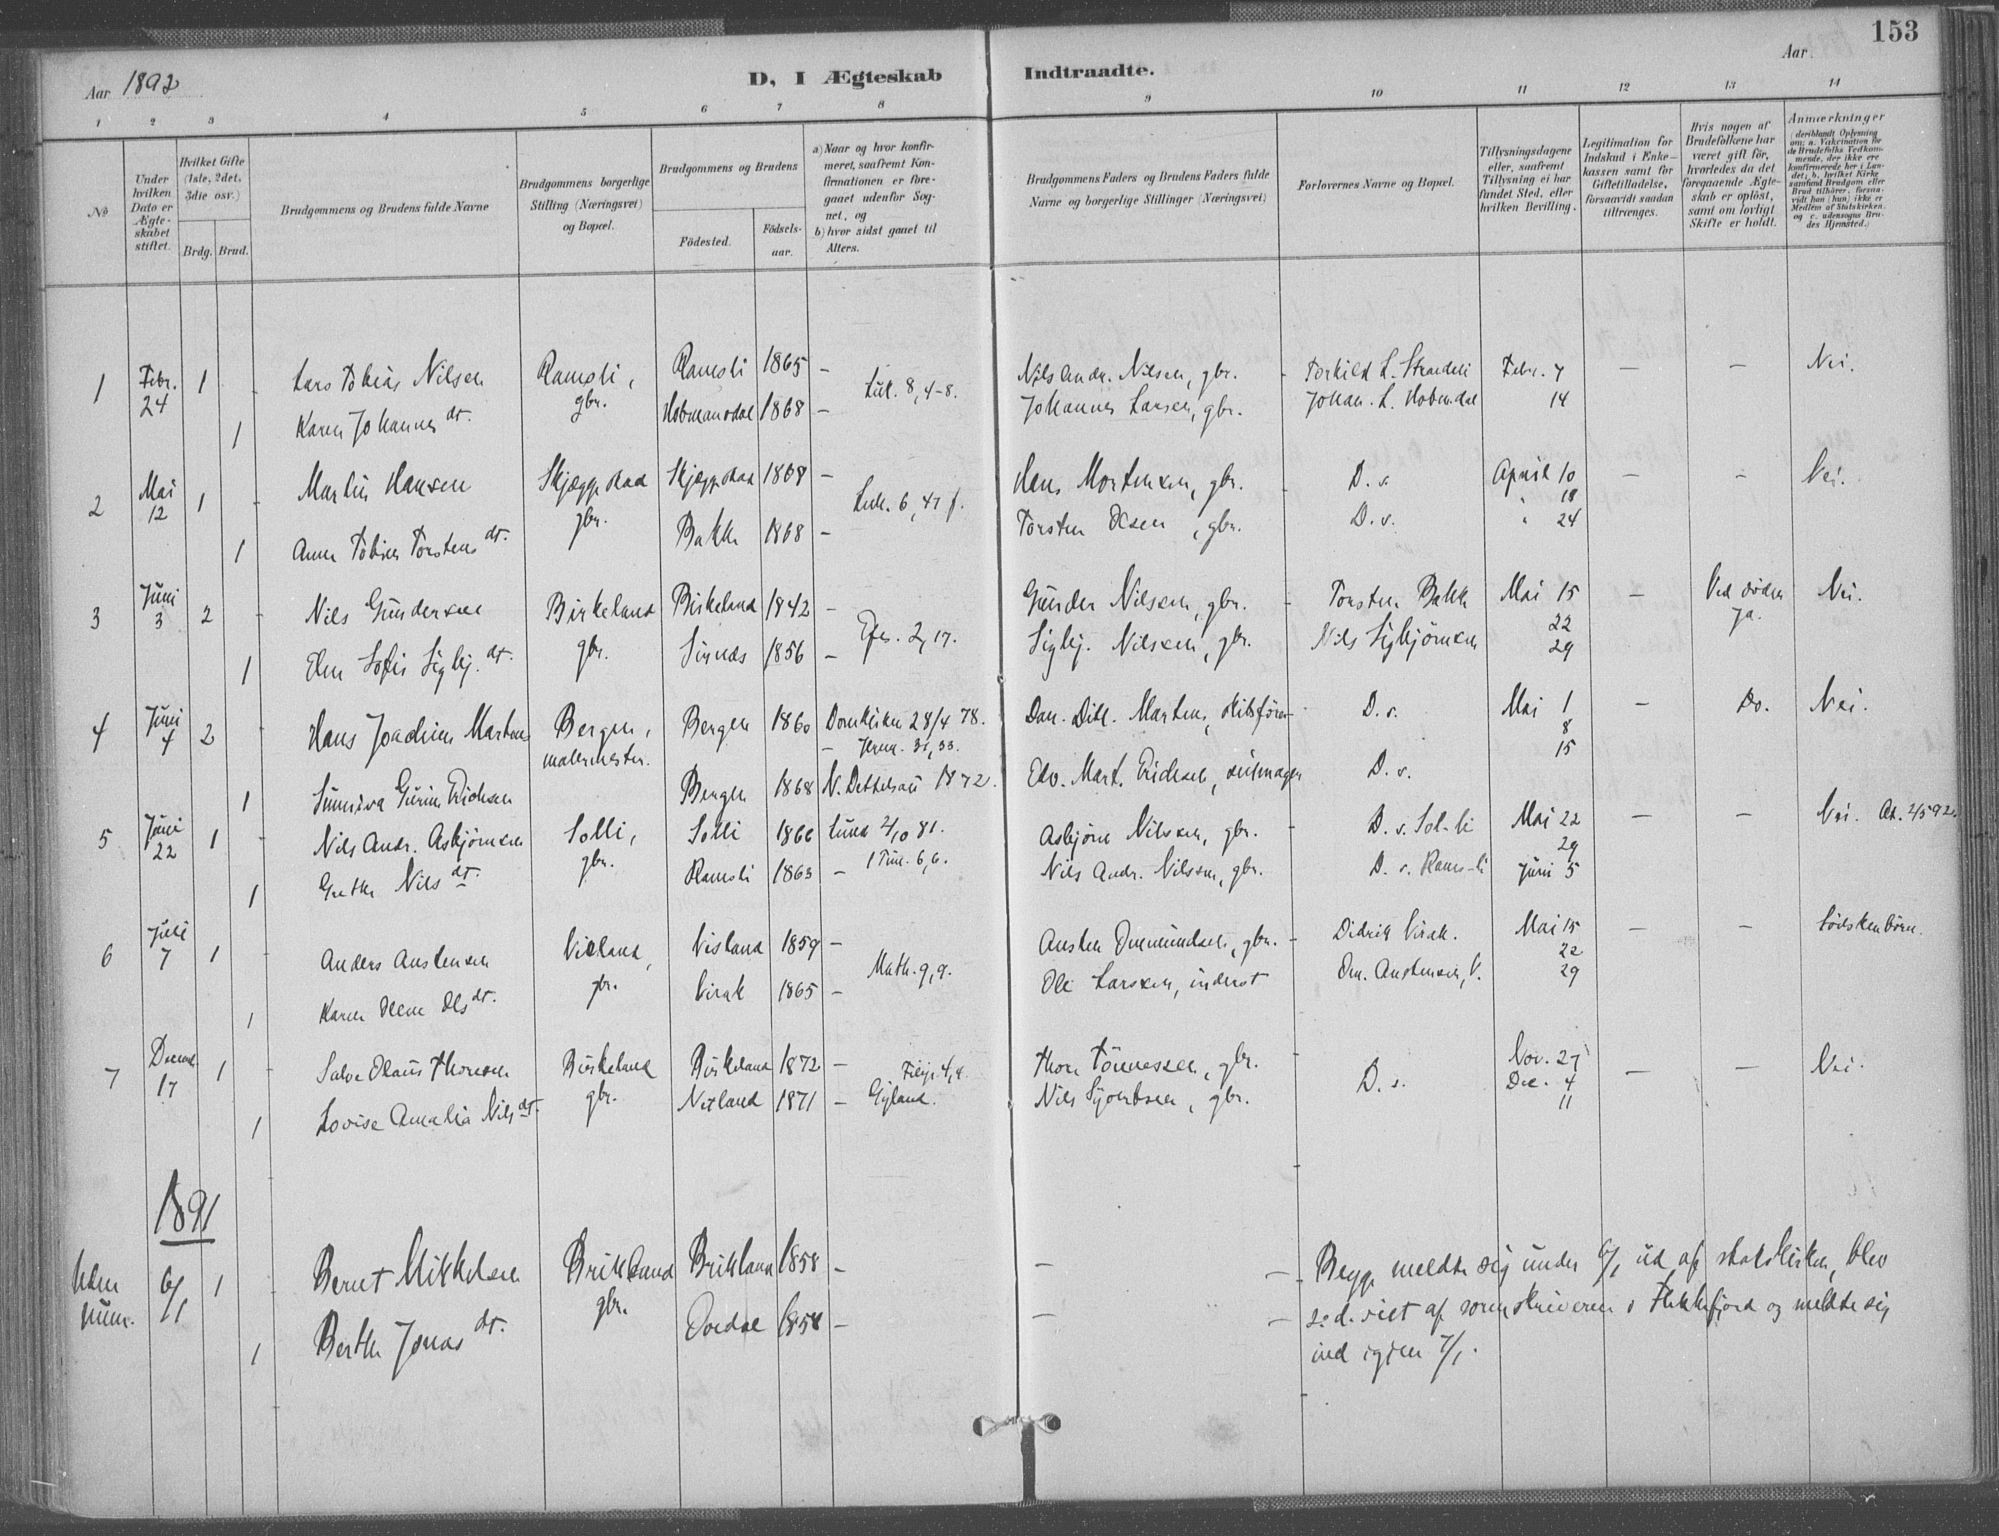 153
Aar 1892
D, I Ægteskab Indtraadte.
Aar
1 2 3 4 5 6 7 8 9 10 11 12 13 14
No
Under hvilken Dato er Ægteskabet stiftet.
Hvilket Gifte (1ste, 2det, 3die osv.)
Brdg. Brud.
Brudgommens og Brudens fulde Navne
Brudgommens borgerlige Stilling (Næringsvei) og Bopæl.
Brudgommens og Brudens
Fødested. Fødselsaar.
a) Naar og hvor konfirmeret, saafremt Konfirmationen er foregaaet udenfor Sognet, og
b) hvor sidst gaaet til Alters.
Brudgommens Faders og Brudens Faders fulde Navne og borgerlige Stillinger (Næringsvei)
Forlovernes Navne og Bopæl.
Tillysningsdagene eller, saafremt Tillysning ei har fundet Sted, efter hvilken Bevilling.
Legitimation for Indskud i Enkekassen samt for Giftetilladelse, forsaavidt saadan tiltrænges.
Hvis nogen af Brudefolkene har været gift før, hvorledes da det foregaaende Ægteskab er opløst, samt om lovligt Skifte er holdt.
Anmærkninger
(deriblandt Oplysning om: a. Vakcination for de Brudefolks Vedkommende, der ikke ere konfirmerede her i Landet; b. hvilket Kirkesamfund Brudgom eller Brud tilhører, forsaavidt han (hun) ikke er Medlem af Statskirken, og c. udensogns Brudes Hjemsted.)
1 Febr. 24 1 Lars Tobias Nilsen Ramsli, gbr. Ramsli 1865 – Luk. 8, 4-8. Nils Andr. Nilsen, gbr. Torkild L. Strædeli Febr. 7 – – Nei.
1 Karen Johannes dt. Hobmansdal 1868 – Johannes Larsen, gbr. Johan. L. Hobmdal 14
2 Mai 12 1 Martin Hansen Skjæggestad gbr. Skjæggestad 1868 – Luk. 6, 47 f. Hans Mortensen, gbr. D. s. April 10 – – Nei.
18
1 Anne Tobine Torstens dt. Bakke 1868 – Torsten Olsen, gbr. D. s. " 24
3 Juni 3 2 Nils Gundersen Birkeland gbr. Birkeland 1842 – Efes. 2, 17. Gunder Nilsen, gbr. Torsten Bakke Mai 15 – Ved døden ja. Nei.
22
1 Elen Sofie Sigbj. dt. Sirnæs 1856 – Sigbj. Nilsen, gbr. Nils Sigbjørnsen 29
4 Juni 4 2 Hans Joachim Martens Bergen, malermester. Bergen 1860 Domkirken 28/4 78. Dan. Ditl. Martens, skibsfører D. s. Mai 1 – Do. Nei.
– Jerem. 31, 33. 8
15
1 Sunniva Gurine Erichsen Bergen 1868 N. Dettelsau 1872. Edv. Mart. Erichsen, D. s.
5 Juni 22 1 Nils Andr. Asbjørnsen Solli, gbr. Solli 1866 Lund 2/10 81. Asbjørn Nilsen, gbr. D. s. Sol-li Mai 22 – – Nei. At. 2/5 92.
1 Tim. 6, 6. 29
1 Grethe Nils dt. Ramsli 1863 – Nils Andr. Nilsen, gbr. D. s. Rams-li Juni 5
6 Juli 7 1 Anders Austensen Visland, gbr. Visland 1859 – Math. 9, 9. Austen Ommundsen, gbr. Didrik Virak. Mai 15 – – Sødskenbørn.
22
1 Karen Olene Ols dt. Virak 1865 – Ole Larsen, inderst Om. Austensen, V. 29
7 Decemb. 17 1 Salve Olaus Thorsen Birkeland gbr. Birkeland 1872 – Filip. 4, 4. Thor Tønnessen, gbr. D. s. Nov. 27 – – Nei.
Dec. 4
1 Lovise Amalia Nils dt. Netland 1871 – Gyland. Nils Sjovertsen, gbr. 11
1891
Uden num. 6/1 1 Bernt Mikkelsen Brikland gbr. Brikland 1858 – – – Begge meldte sig under 6/1 ud af statskirken, blev
1 Berthe Jonas dt. Dordal 1858 – – – s. d. viet af sorenskriveren i Flekkefjord og meldte sig
ind igjen 7/1.